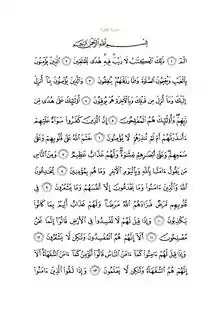 سورة البقرة
بسم الله الرحمن الرحيم
الم ١ ذلك الكتب لا ريب فيه هدى للمتقين ٢ الذين يؤمنون
بالغيب ويقيمون الصلوة ومما رزقنهم ينفقون ٣ والذين يؤمنون بما أنزل
إليك وما أنزل من قبلك وبالآخرة هم يوقنون ٤ أولئك على هدى من
ربهم وأولئك هم المفلحون ٥ إن الذين كفروا سواء عليهم
ءأنذرتهم أم لم تنذرهم لا يؤمنون ٦ ختم الله على قلوبهم وعلى
سمعهم وعلى أبصرهم غشوة ولهم عذاب عظيم ٧ ومن الناس
من يقول ءامنا بالله وباليوم الآخر وما هم بمؤمنين ٨ يخدعون
الله والذين ءامنوا وما يخدعون إلا أنفسهم وما يشعرون ٩ في
قلوبهم مرض فزادهم الله مرضا ولهم عذاب أليم بما كانوا
يكذبون ١٠ وإذا قيل لهم لا تفسدوا في الأرض قالوا إنما نحن
مصلحون ١١ ألا إنهم هم المفسدون ولكن لا يشعرون ١٢
وإذا قيل لهم ءامنوا كما ءامن الناس قالوا أنؤمن كما ءامن السفهاء ألا
إنهم هم السفهاء ولكن لا يعلمون ١٣ وإذا لقوا الذين ءامنوا